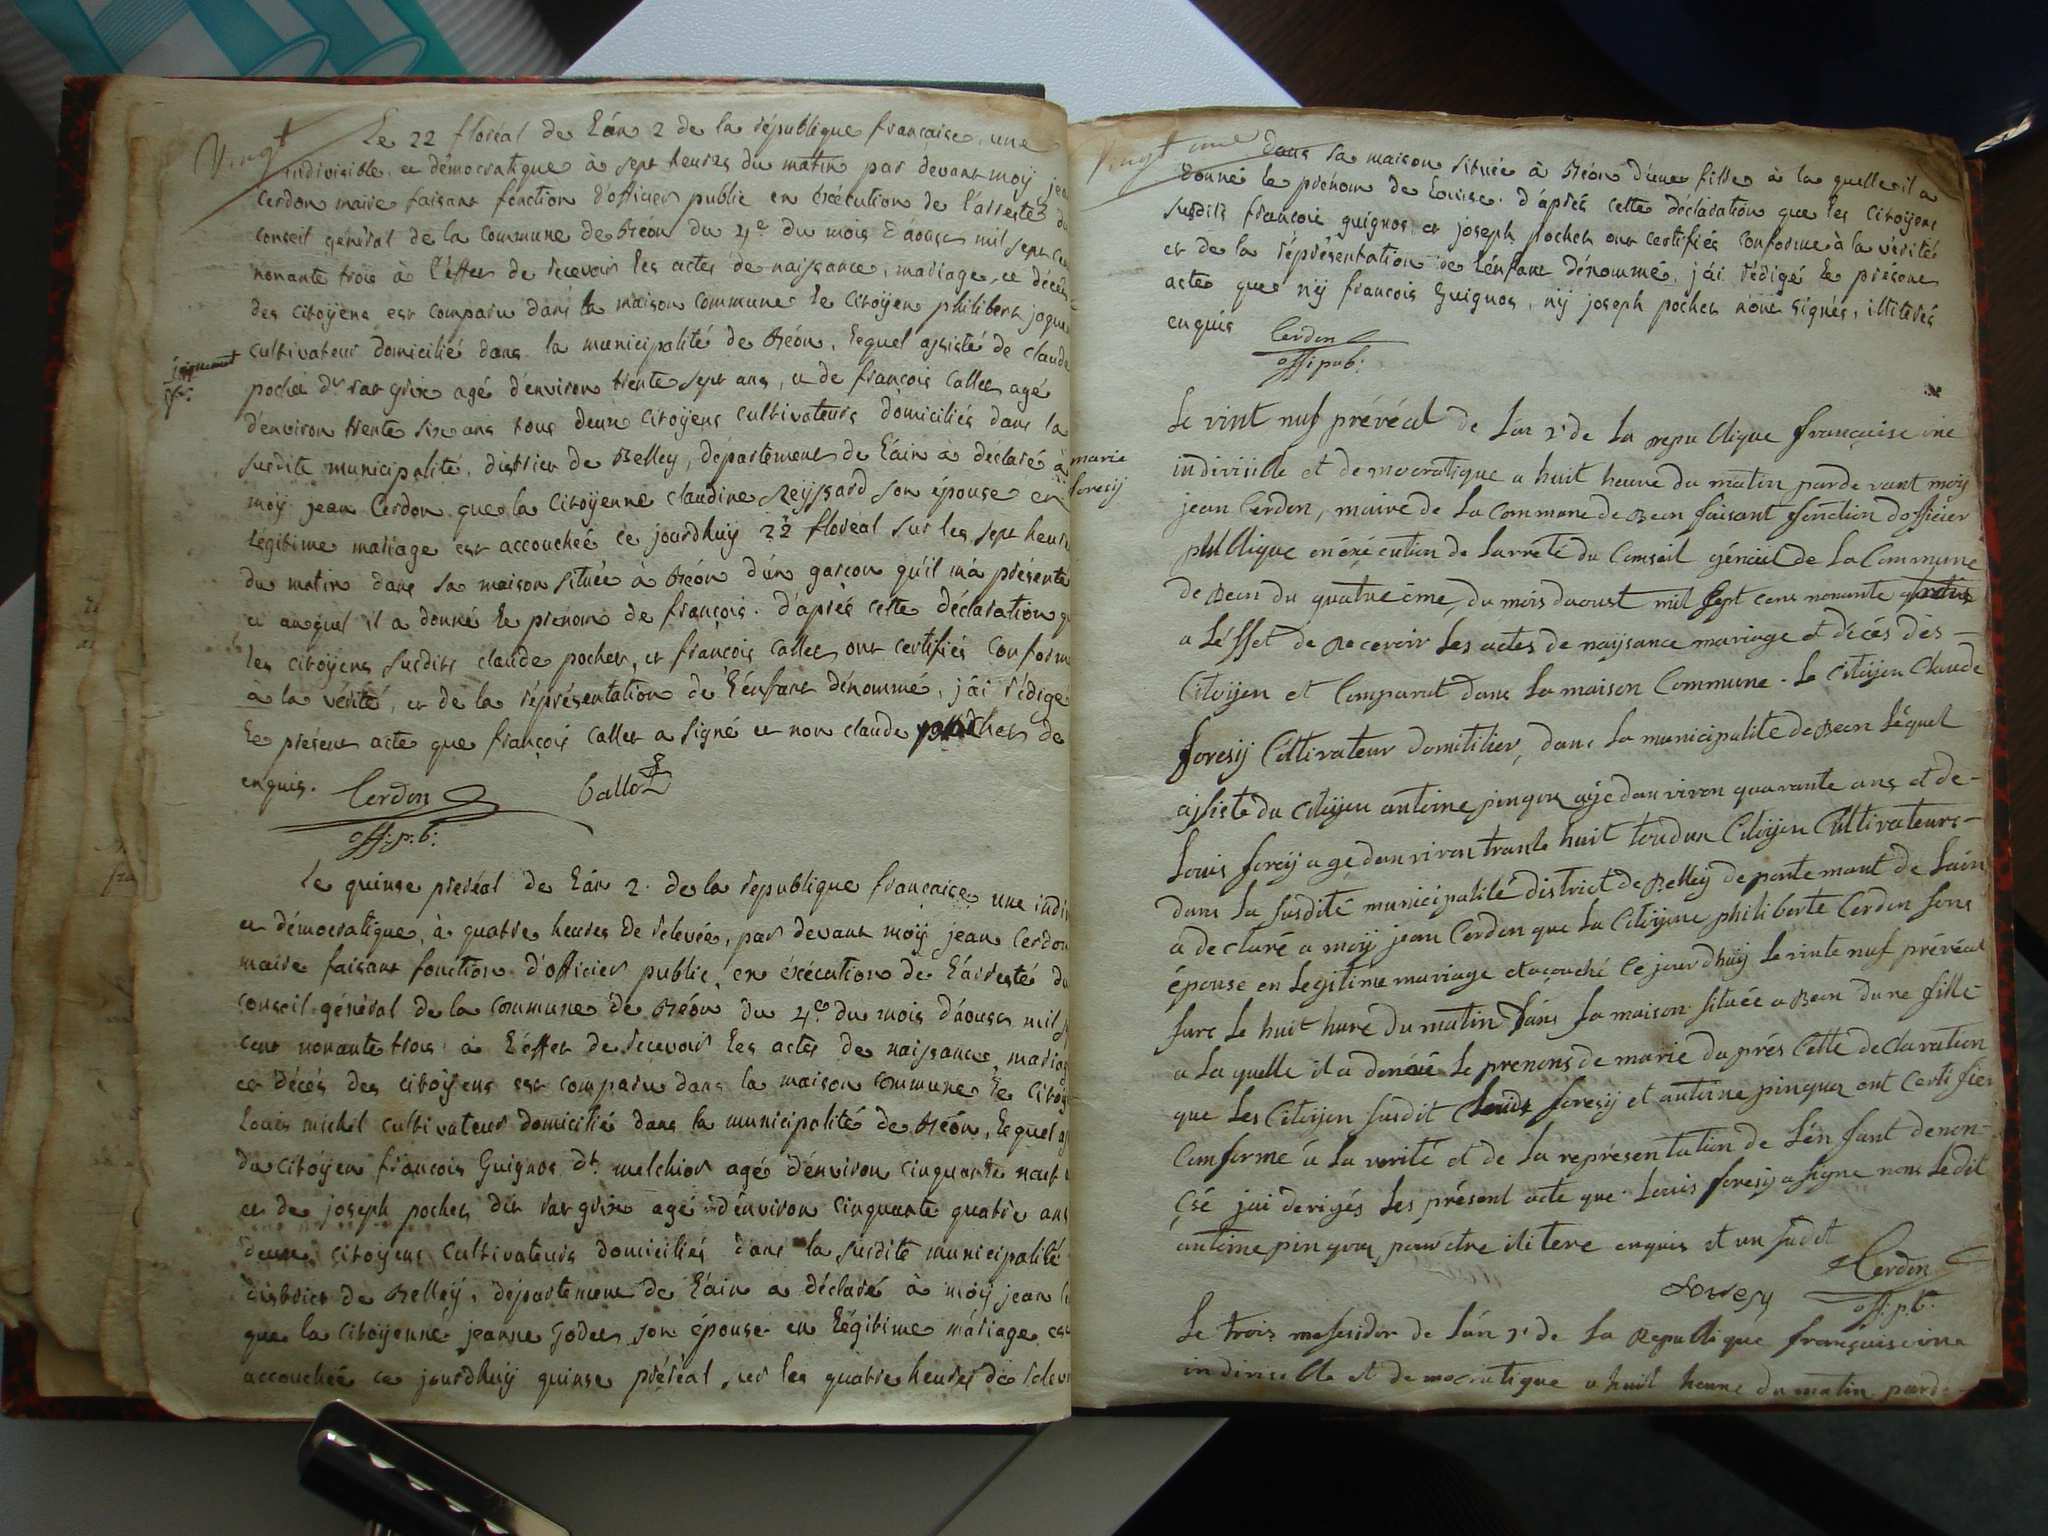 Vingt
Le 22 floréal de L'án 2 de la république francaise, une
indivisible, et démocratique à sept heures du matin par devant moÿ jea
Cerdon maire faisant fonction d'officier public en éxécution de l'arresté du
conseil général de la commune de Béon du 4e du mois d'áoust mil sept cen
nonante trois à l'éffet de recevoir les actes de naissance, mariage, et décès
des citoÿens est comparu dans la maison commune le citoÿen philibert jaque
cultivateur domicilié dans la municipalité de Béon, lequel assisté de claude
pochet dt var grix agé d'environ trente sept ans, et de francois callet agé
d'environ trente six ans tous deux citoÿens cultivateurs domiciliés dans la
susdite municipalité, district de Belley, département de L'áin à déclaré à
moÿ jean Cerdon que la citoÿenne claudine Reÿssard son épouse en
légitime mariage est accouchée ce jourdhuÿ 22 floréal sur les sept heure
du matin dans sa maison située à Béon d'un garçon qu'il m'a présenté
et auquel il a donné le prenom de françois. d'aprés cette déclaration q
les citoÿens susdits claude pochet, et françois callet ont certifiés conforme
à la vérité, et de la réprésentation de l'énfant dénommé, j'ái rédigé
le présent acte que françois callet a signé et non claude pochet de
enquis. Cerdon Callet
off: p. b:
Le quinse preréal de L'án 2. de la republique francaise une indiv
et démocratique, à quatre heures de relevée, par devant moÿ jean Cerdon
maire faisant fonction d'officier public, en éxécution de l'arresté du
conseil général de la commune de Béon du 4e du mois d'áoust mil s
cent nonante trois à l'éffet de recevoir les actes de naissance, mariag
et décés des citoÿens est comparu dans la maison commune le citoÿ
Louis michel cultivateur domicilié dans la municipalité de Béon, lequel as
du citoÿen francois Guignos dt. melchior agé d'énviron cinquante neuf
et de joseph pochet dit var grix agé d'énviron cinquante quatre ans
deux citoÿens cultivateurs domiciliés dans la susdite municipalité
district de Belleÿ, département de L'áin a déclaré à moÿ jean C
que la citoÿenne jeanne Godet son épouse en légitime mariage est
accouchée ce jourdhuÿ quinse preréal sur les quatre heures de relev
Vingt une
dans sa maison située à Béon d'une fille à la quelle il a
donné le prénom de Louise. d'aprés cette déclaration que les citoÿens
susdits françois guignos et joseph pochet ont certifiés conforme à la vérité
et de la réprésentation de l'énfant dénommé, j'ái rédigé le présent
acte que nÿ francois Guignos, nÿ joseph pochet n'ont signés, illiterés
enquis Cerdon
off: pub:
marie
foresÿ
Le vint nuf préréal de L'an 2e de La republique françaisse une
indivisible et democratique a huit heure du matin parde vant moÿ
jean Cerdon, maire de La Commune de Bean faisant fonction dofficier
publique en éxécution de Larrété du Conseil général de La Commune
de Bean du quatrieme, du mois daoust mil sept cens nonante
a L'éffet de Recevoir Les actes de naysance mariage et décès des
Citoÿen et Comparut dans La maison Commune. Le Citoÿen Claude
foresÿ Cultivateur domitilier, dans La municipalite de Bean Léquel
assiste du Citoÿen antoine pingon agé danviron quarante ans et de
Louis foresÿ agé danviron trante huit toudun Citoÿen Cultivateurs
dans La susdité municipalité district de Belleÿ departemant de Lain
a declaré a moÿ jean Cerdon que La Citoÿene philiberte Cerdon sons
épouse en Legitime mariage et acouché Ce jour d'huÿ Le vinte nuf préréal
surs Le huit hure du matin dans sa maison située a Bean dune fille
a La quelle il a donné Le prenons de marie daprés Cette declaration
que Les Citoÿen susdit Louis foresÿ et antoine pingon ont Certifier
Conforme a La verité et de La représentation de L'énfant denon-
çsé jai derigés Les présent acte que Louis foresÿ a signe nons Ledit
antoine pingon pour etre ilitere enquis et un sudit
Foresy Cerdon
off: p. b:
Le trois messidor de L'an 2e de La Republique françaisse une
indivisible et democratique a huit heure du matin parde